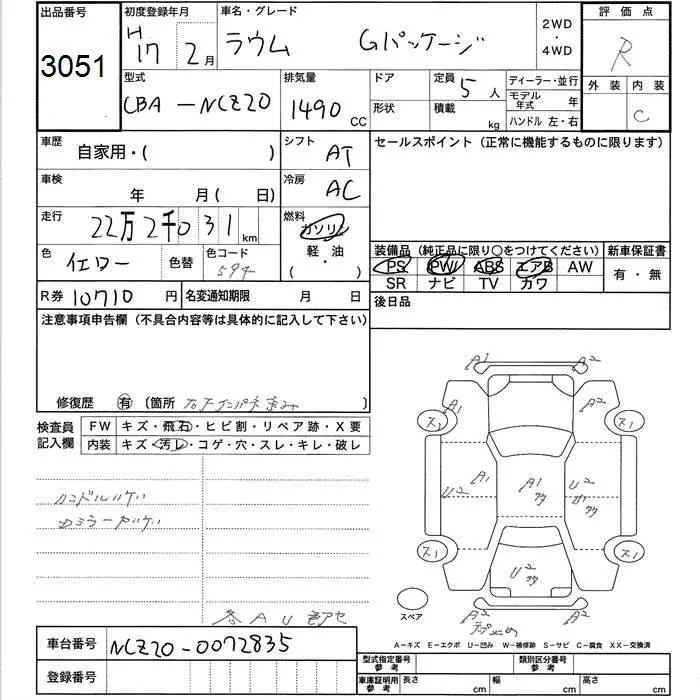 出品番号 初度登録年月 車名・グレード 2WD ・ 4WD 評価点
3051 H17 2月 ラウム Gパッケージ R
型式 排気量 ドア 定員 5人 ディーラー・並行 外装 内装
CBA-NCZ20 1490 CC 形状 積載 kg モデル年式 年 C
ハンドル 左・右
車歴 自家用・( ) シフト AT セールスポイント (正常に機能するものに限ります)
車検 年 月( 日) 冷房 AC
走行 22万2千031km 燃料 ガソリン
軽・油
( ・ )
色 イエロー 色替 色コード 装備品 (純正品に限り○をつけてください) 新車保証書
PS PW ABS エアB AW 有・無
SR ナビ TV カワ
R券 10710円 名変通知期限 月 日 後日品
注意事項申告欄 (不具合内容等は具体的に記入して下さい)
修復歴 有 〔箇所 〕
検査員記入欄 FW キズ・飛石・ヒビ割・リペア跡・X要
内装 キズ・汚レ・コゲ・穴・スレ・キレ・破レ
ハンドルハゲ
A1 A2
A1 A2
ス1 ス1
U2 A1 A1 U2
ス1 ス1
U2
A2 A2
スペア
A-キズ E-エクボ U-凹み W-補修跡 S-サビ C-腐食 XX-交換済
車台番号 NCZ20-0072835
登録番号
型式指定番号 参考 類別区分番号 参考
車庫証明用 参考 長さ cm 幅 cm 高さ cm